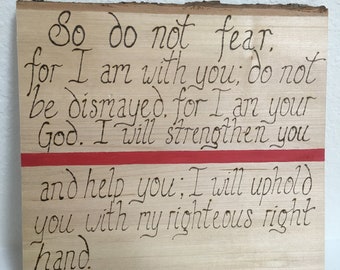 So do not fear,
for I am with you; do not
be dismayed, for I am your
God. I will strengthen you
and help you; I will uphold
you with my righteous right
hand.